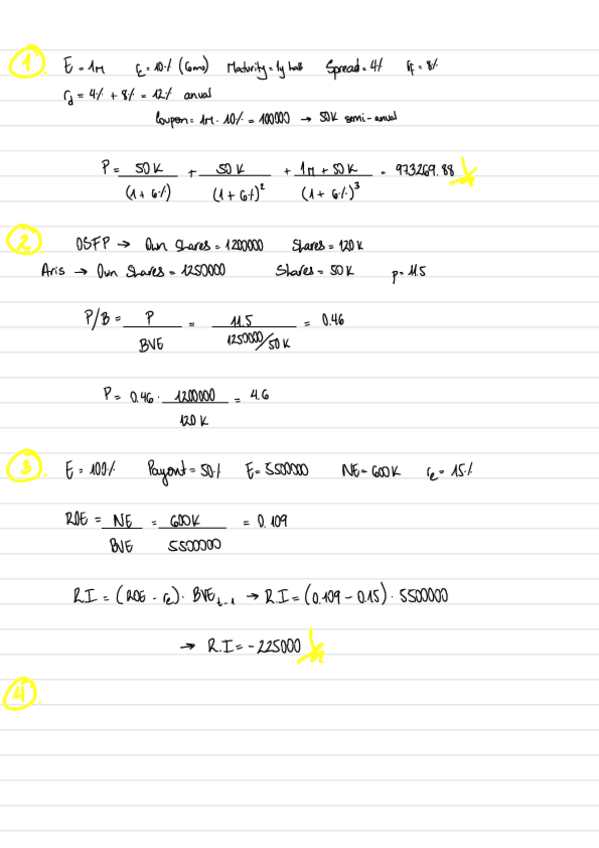 1. E = 1M r_c = 10% (6mo) Maturity = 1y half Spread = 4% rf = 8%
r_d = 4% + 8% = 12% anual
Coupon = 1M · 10% = 100000 → 50K semi-anual
P = 50K / (1 + 6%) + 50K / (1 + 6%)^2 + 1M + 50K / (1 + 6%)^3 = 973269.88
2. OSFP → Own Shares = 1200000 Shares = 120K
Aris → Own Shares = 1250000 Shares = 50K p = 11.5
P/B = P / BVE = 11.5 / 1250000/50K = 0.46
P = 0.46 · 1200000 / 120K = 4.6
3. E = 100% Payout = 50% E = 5500000 NE = 600K r_e = 15%
ROE = NE / BVE = 600K / 5500000 = 0.109
R.I = (ROE - r_e) · BVE_t-1 → R.I = (0.109 - 0.15) · 5500000
→ R.I = -225000
4.